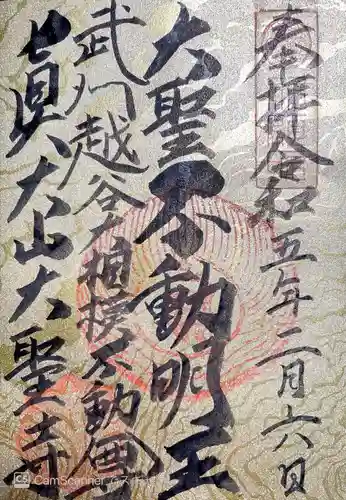 奉拝 令和五年二月六日
大聖不動明王
武州越谷大相撲不動尊
真大山大聖寺
CS CamScanner